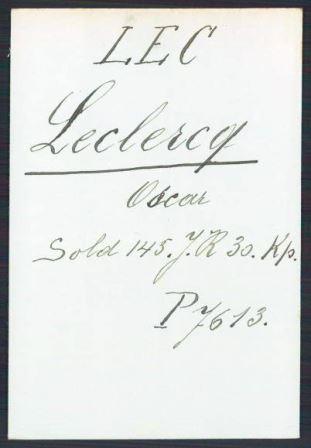 LEC
Leclercq
Oscar
Sold 145. J. R 30. Kp.
P 7613.